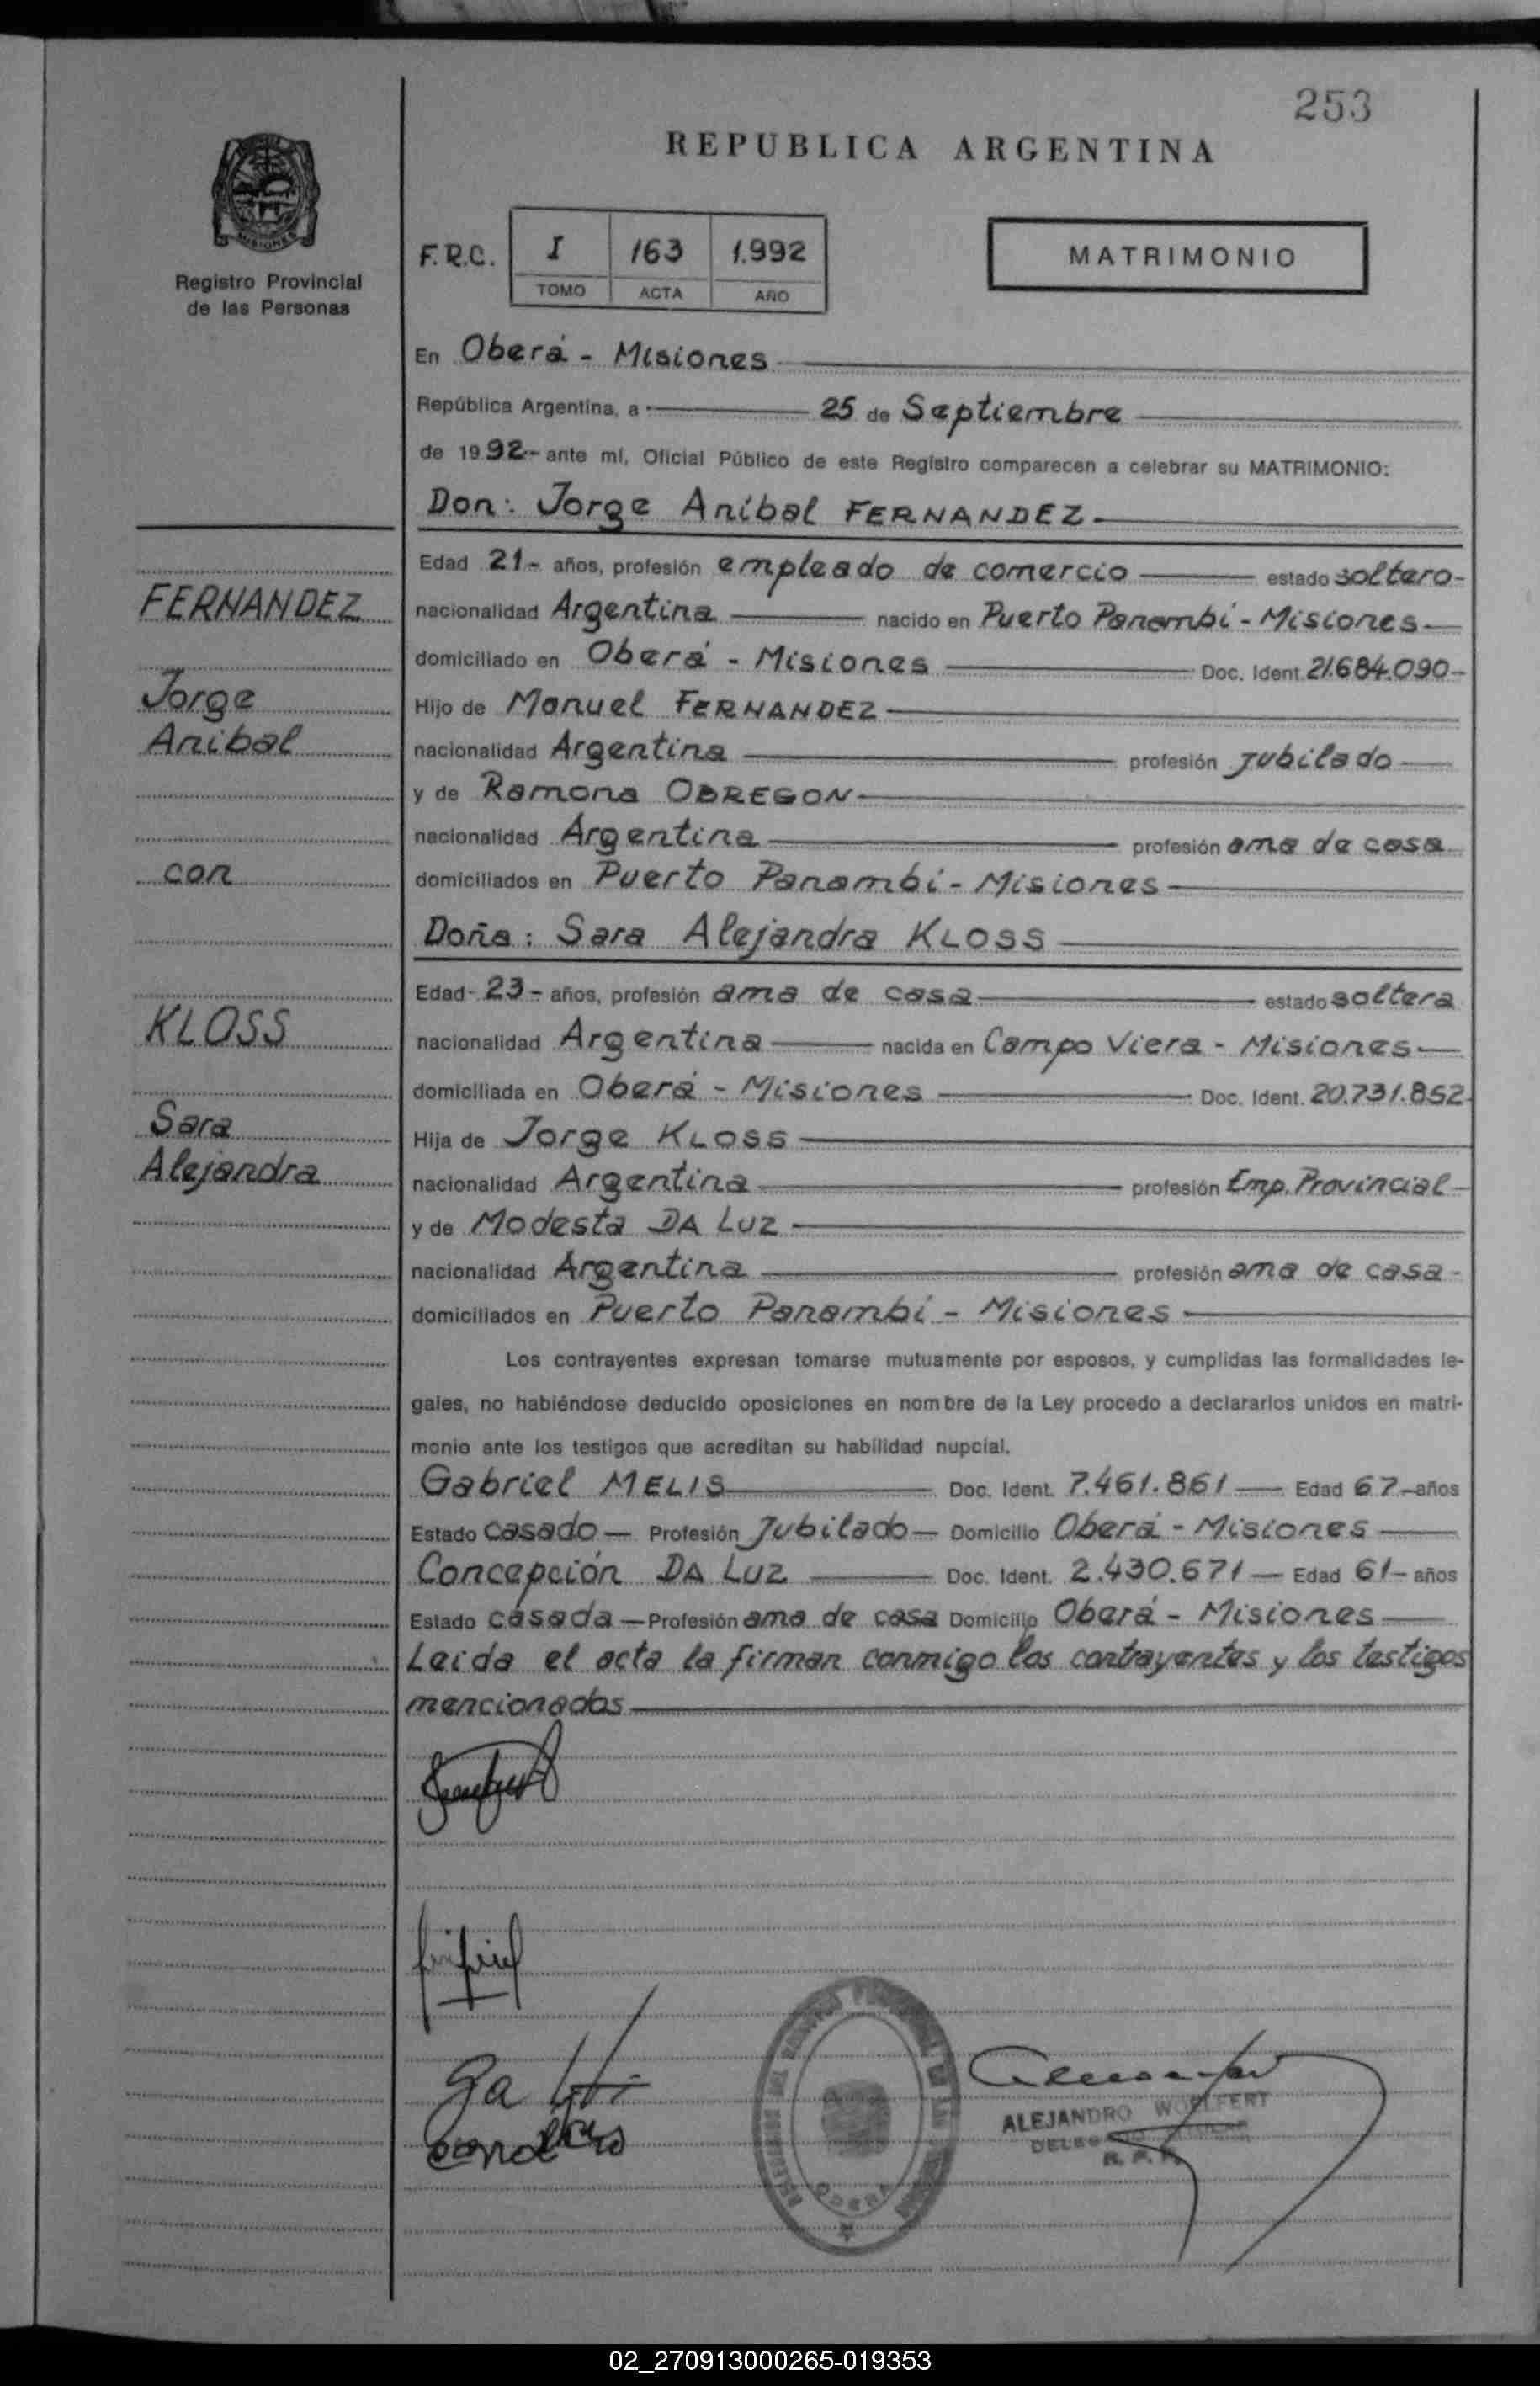 253
REPUBLICA ARGENTINA
MISIONES
Registro Provincial
de las Personas
F.R.C. I 163 1.992
TOMO ACTA AÑO
MATRIMONIO
En Oberá - Misiones
República Argentina, a 25 de Septiembre
de 1992- ante mí, Oficial Público de este Registro comparecen a celebrar su MATRIMONIO:
Don: Jorge Anibal FERNANDEZ
Edad 21- años, profesión empleado de comercio estado soltero-
FERNANDEZ
nacionalidad Argentina nacido en Puerto Panambí - Misiones
domiciliado en Oberá - Misiones Doc. Ident. 21.684.090-
Jorge
Hijo de Manuel FERNANDEZ
Anibal
nacionalidad Argentina profesión Jubilado
y de Ramona OBREGON
nacionalidad Argentina profesión ama de casa
con
domiciliados en Puerto Panambí - Misiones
Doña: Sara Alejandra KLOSS
Edad- 23- años, profesión ama de casa estado soltera
KLOSS
nacionalidad Argentina nacida en Campo Viera - Misiones
domiciliada en Oberá - Misiones Doc. Ident. 20.731.852
Sara
Hija de Jorge KLOSS
Alejandra
nacionalidad Argentina profesión Emp. Provincial
y de Modesta DA LUZ
nacionalidad Argentina profesión ama de casa -
domiciliados en Puerto Panambí - Misiones
Los contrayentes expresan tomarse mutuamente por esposos, y cumplidas las formalidades le-
gales, no habiéndose deducido oposiciones en nombre de la Ley procedo a declararlos unidos en matri-
monio ante los testigos que acreditan su habilidad nupcial.
Gabriel MELIS Doc. Ident. 7.461.861 Edad 67 años
Estado casado Profesión Jubilado Domicilio Oberá - Misiones
Concepción DA LUZ Doc. Ident. 2.430.671 Edad 61- años
Estado casada Profesión ama de casa Domicilio Oberá - Misiones
Leida el acta la firman conmigo los contrayentes y los testigos
mencionados
ALEJANDRO WOLFERT
OBERA
02_270913000265-019353